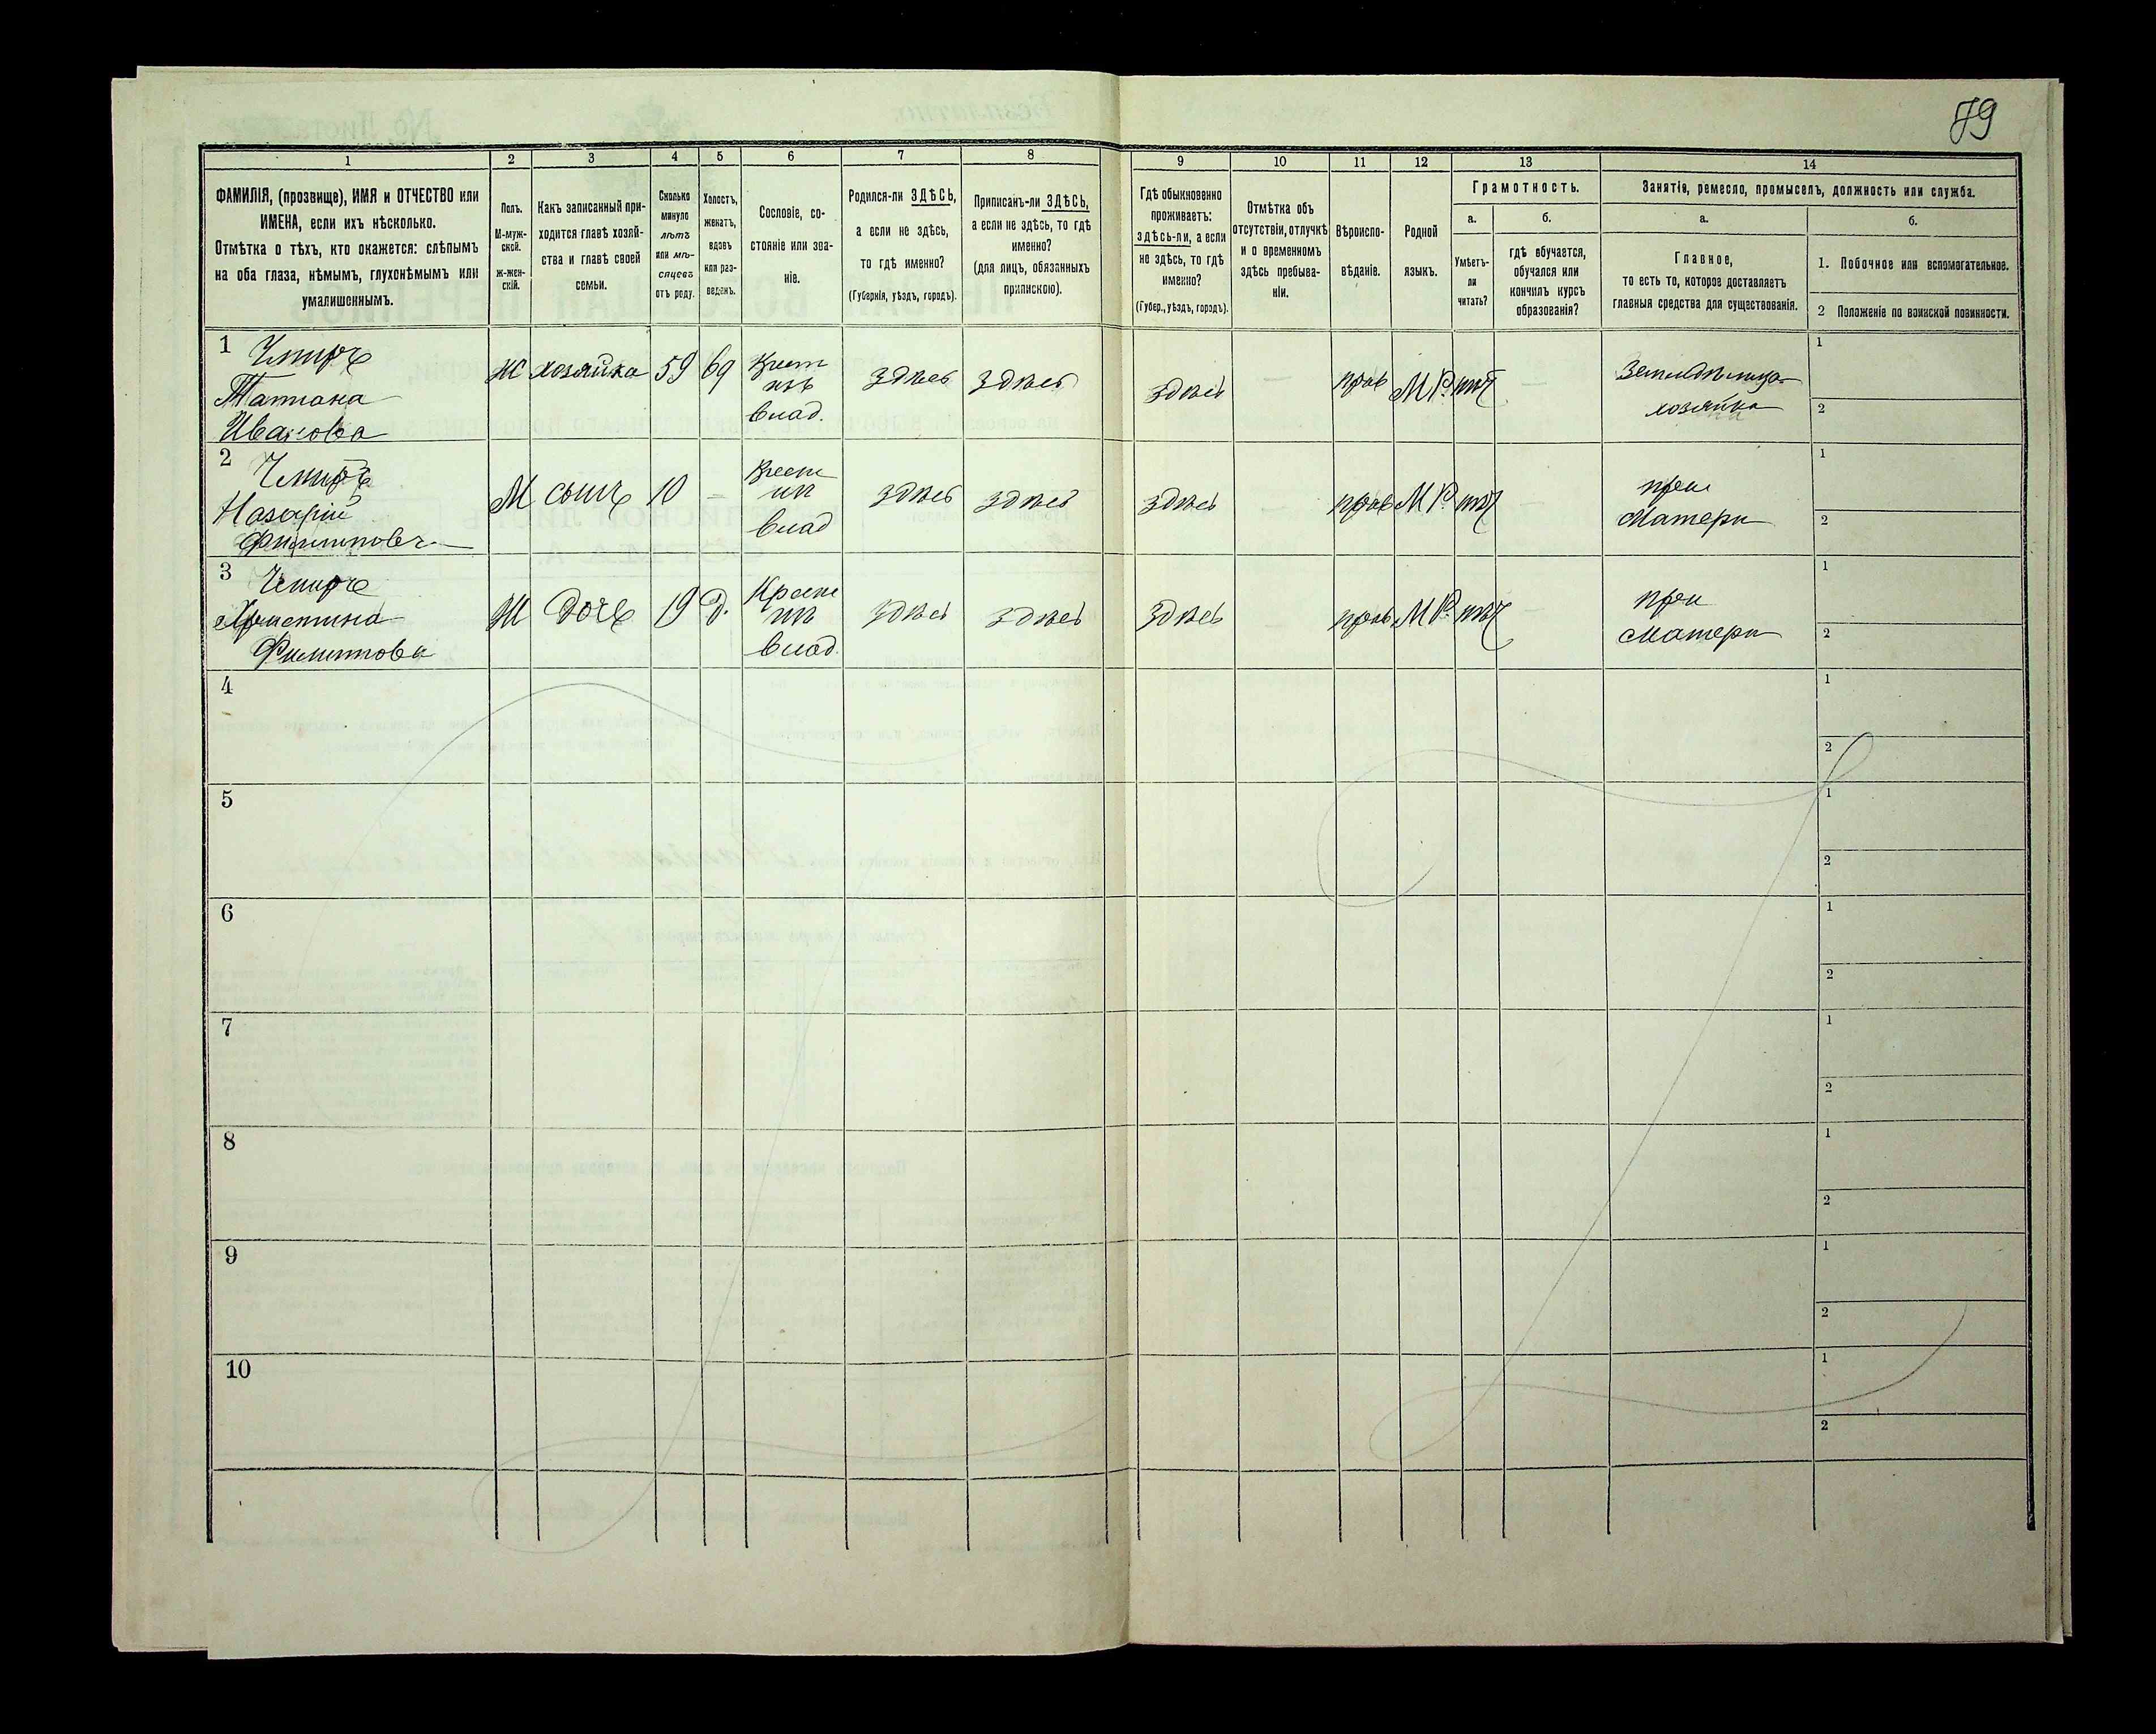 79
1
2
3
4
5
6
7
8
9
10
11
12
13
14
ФАМИЛІЯ, (прозвище), ИМЯ и ОТЧЕСТВО или
ИМЕНА, если ихъ нѣсколько.
Отмѣтка о тѣхъ, кто окажется: слѣпымъ
на оба глаза, нѣмымъ, глухонѣмымъ или
умалишеннымъ.
Полъ.
М-муж-
ской.
ж-жен-
скій.
Какъ записанный при-
ходится главѣ хозяй-
ства и главѣ своей
семьи.
Сколько
минуло
лѣтъ
или мѣ-
сяцевъ
отъ роду.
Холостъ,
женатъ,
вдовъ
или раз-
веденъ.
Сословіе, со-
стояніе или зва-
ніе.
Родился-ли ЗДѢСЬ,
а если не здѣсь,
то гдѣ именно?
(Губернія, уѣздъ, городъ).
Приписанъ-ли ЗДѢСЬ,
а если не здѣсь, то гдѣ
именно?
(для лицъ, обязанныхъ
припискою).
Гдѣ обыкновенно
проживаетъ:
здѣсь-ли, а если
не здѣсь, то гдѣ
именно?
(Губер., уѣздъ, городъ).
Отмѣтка объ
отсутствіи, отлучкѣ
и о временномъ
здѣсь пребыва-
ніи.
Вѣроиспо-
вѣданіе.
Родной
языкъ.
Грамотность.
а.
б.
Умѣетъ-
ли
читать?
гдѣ обучается,
обучался или
кончилъ курсъ
образованія?
Занятіе, ремесло, промыселъ, должность или служба.
а.
б.
Главное,
то есть то, которое доставляетъ
главныя средства для существованія.
1. Побочное или вспомогательное.
2 Положеніе по воинской повинности.
1
Татіана
Иванова
Ж хозяйка 59 вд Крест
изъ
влад.
здѣсь здѣсь здѣсь прав М.Р. нѣт
хозяйка
1
2
2
Назарій
Филиповъ
М сынъ 10 – Крест
изъ
влад
здѣсь здѣсь здѣсь прав М.Р. нѣт
при
Матери
1
2
3
Христина
Филипова
Ж дочь 19 д. Крест
изъ
влад.
здѣсь здѣсь здѣсь прав М.Р. нѣт
при
Матери
1
2
4
1
2
5
1
2
6
1
2
7
1
2
8
1
2
9
1
2
10
1
2